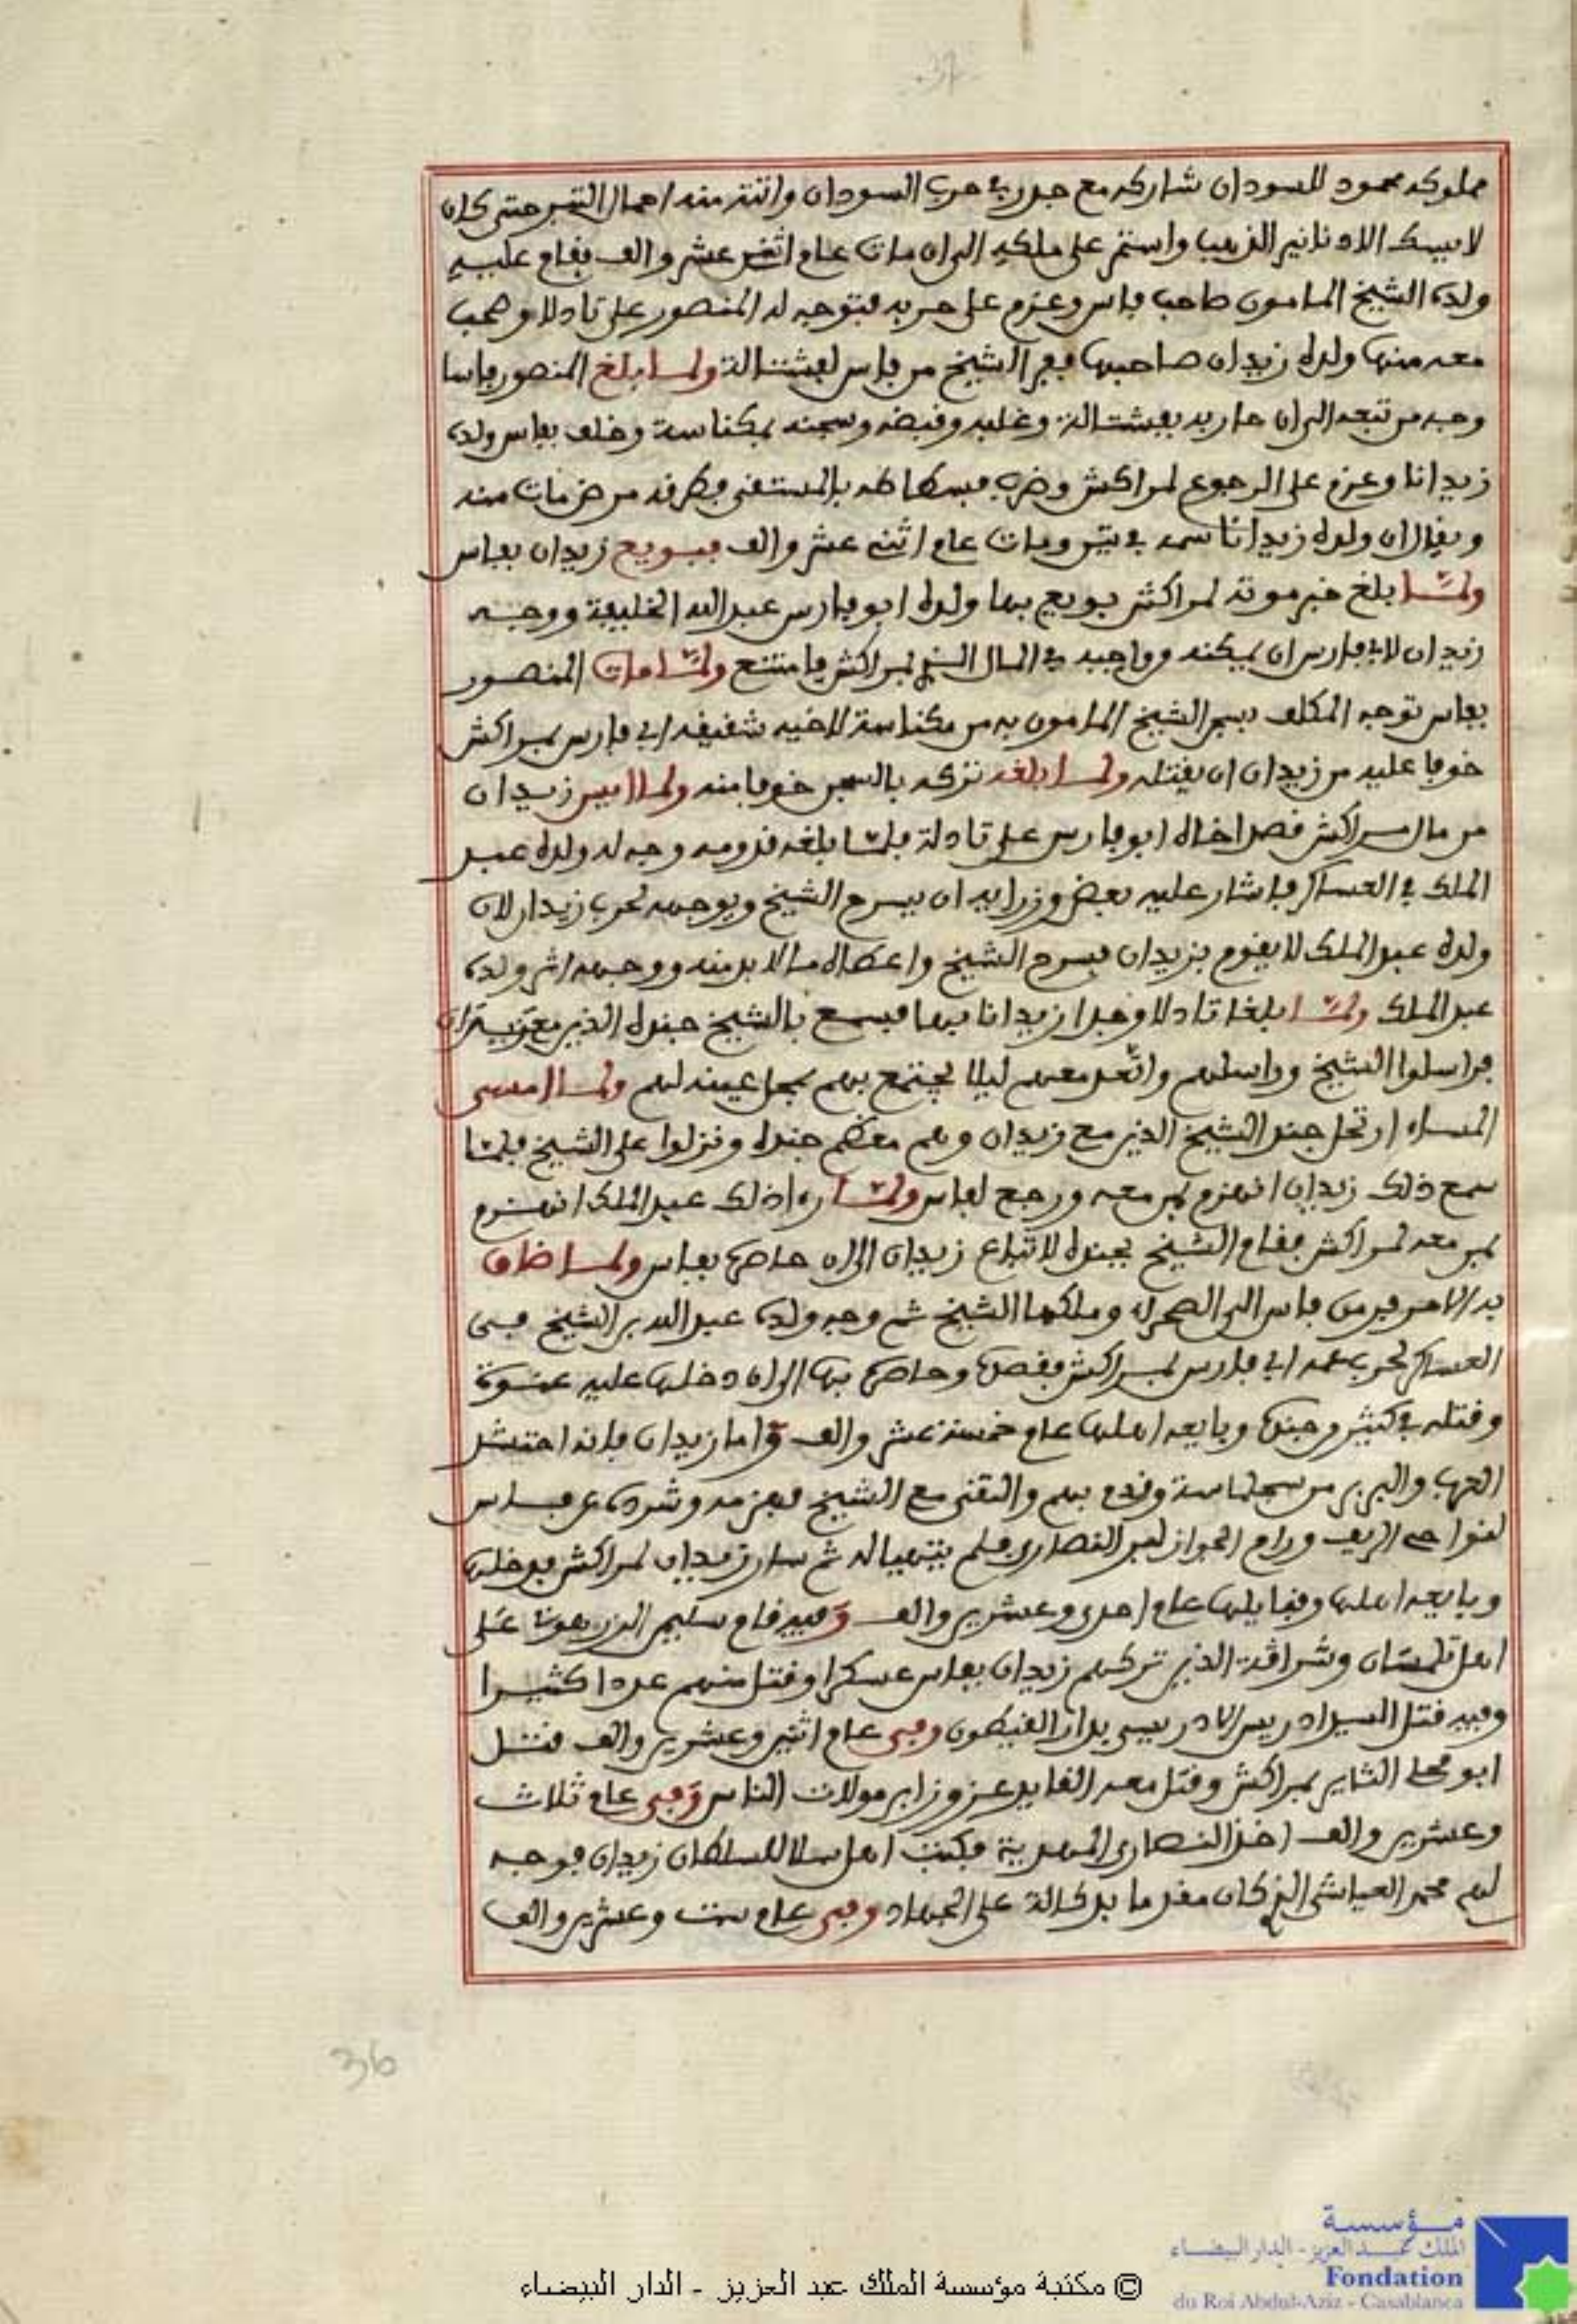 37
مملوكه محمود للسودان شاركه مع جدر في حرب السودان واتته منه احمال التبر حتى كان
لا يسك الا دنانير الذهب واستمر على ملكه الى ان مات عام اثنى عشر والف فقام عليه
ولده الشيخ المامون صاحب فاس وعزم على حربه فتوجه له المنصور على تادلا وصحب
معه منها ولده زيدان صاحبها ففر الشيخ من فاس لفشتالة ولما بلغ المنصور فاسا
وجه من تبعه الى ان حاربه بفشتالة وغلبه وقبضه وسجنه بمكناسة وخلف بفاس ولده
زيدانا وعزم على الرجوع لمراكش وضرب فسطاطه بالمستقى فطرقه مرض مات منه
ويقال ان ولده زيدانا سمه في تين ومات عام اثنى عشر والف فبويع زيدان بفاس
ولما بلغ خبر موته لمراكش بويع بها ولده ابو فارس عبد الله الخليفة ووجه
زيدان لابي فارس ان يمكنه مواجبه في المال الذي بمراكش فامتنع ولما مات المنصور
بفاس توجه المكلف بسجن الشيخ المامون به من مكناسة لاخيه شقيقه ابي فارس بمراكش
خوفا عليه من زيدان ان يقتله ولما بلغه تركه بالسجن خوفا منه ولما ايس زيدان
من مال مراكش قصد اخاه ابو فارس على تادلة فلما بلغه قدومه وجه له ولده عبد
الملك في العساكر فاشار عليه بعض وزرايه ان يسرح الشيخ ويوجهه لحرب زيدان لان
ولده عبد الملك لا يقوم بزيدان فسرح الشيخ واعطاه ما لا بد منه ووجهه اثر ولده
عبد الملك ولما بلغا تادلا وجدا زيدانا بها فسمع بالشيخ جنده الذين
فراسلوا الشيخ وراسلهم واتعد معهم ليلا يجتمع بهم بمحل عينه لهم ولما امسى
المساء ارتحل جند الشيخ الذين مع زيدان وهم معظم جنده ونزلوا على الشيخ فلما
سمع ذلك زيدان انهزم بمن معه ورجع لفاس ولما راى ذلك عبد الملك انهزم
بمن معه لمراكش فقام الشيخ بجنده لاتباع زيدان الى ان حاصره بفاس ولما ضاق
به الامر فر من فاس الى الصحراء وملكها الشيخ ثم وجه ولده عبد الله بن الشيخ في
العساكر لحرب عمه ابي فارس بمراكش فقصده وحاصره بها الى ان دخلها عليه عنوة
وقتله في كثير من جنده وبايعه اهلها عام خمسة عشر والف واما زيدان فانه احتشد
العرب والبربر من سجلماسة وقدم بهم والتقى مع الشيخ فهزمه وشرده عن فاس
لنواحي الريف ورام الجواز لبر النصارى فلم يتهيا له ثم سار زيدان لمراكش فدخلها
وبايعه اهلها وقبايلها عام احدى وعشرين والف وفيه قام سليمن الزرهوني على
اهل تلمسان وشراقة الذين تركهم زيدان بفاس عسكرا وقتل منهم عددا كثيرا
وفيه قتل السيد ادريس الادريسي بدار القيطون وفي عام اثنين وعشرين والف قتل
ابو محلي الثاير بمراكش وقتل معه القايد عزوز ابن مولات الناس وفي عام ثلاث
وعشرين والف اخذ النصارى المهدية فكتب اهل سلا للسلطان زيدان فوجه
لهم محمد العياشي الذي كان مقدما بدكالة على الجهاد وفي عام ست وعشرين والف
36
مؤسسة
الملك عبد العزيز - الدار البيضاء
Fondation
du Roi Abdul-Aziz - Casablanca
© مكتبة مؤسسة الملك عبد العزيز - الدار البيضاء